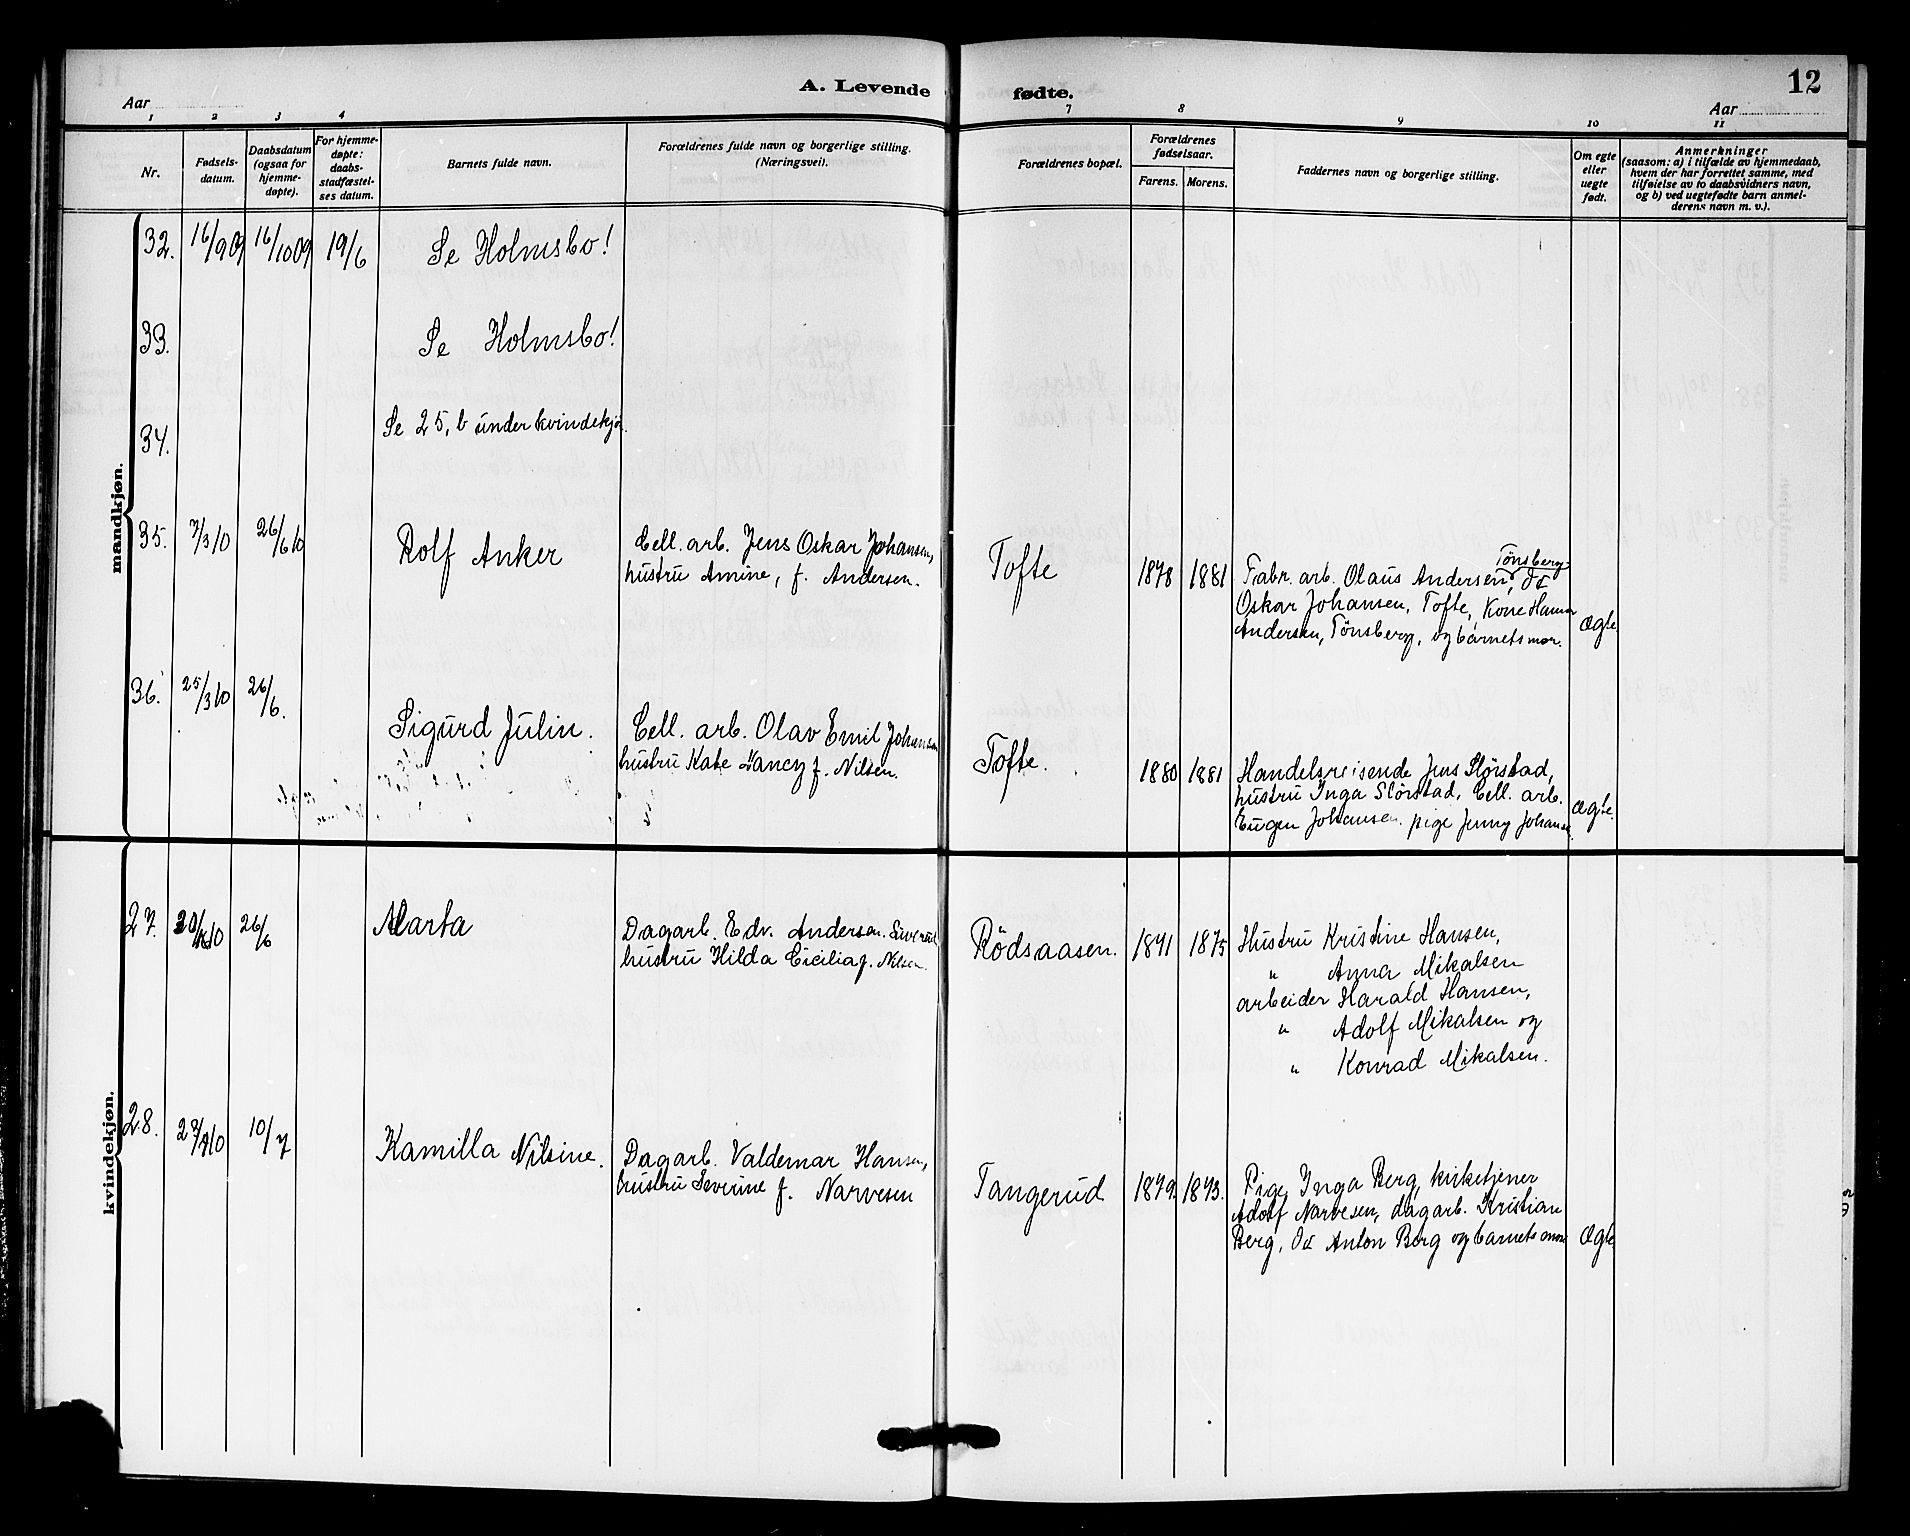 A. Levende fødte.
12
Aar
Aar
1 2 3 4 7 8 9 10 11
Nr.
Fødsels-
datum.
Daabsdatum
(ogsaa for
hjemme-
døpte).
For hjemme-
døpte:
daabs-
stadfæstel-
ses datum.
Barnets fulde navn.
Forældrenes fulde navn og borgerlige stilling.
(Næringsvei).
Forældrenes bopæl.
Forældrenes
fødselsaar.
Farens. Morens.
Faddernes navn og borgerlige stilling.
Om egte
eller
uegte
født.
Anmerkninger
(saasom: a) i tilfælde av hjemmedaab,
hvem der har forrettet samme, med
tilføielse av to daabsvidners navn,
og b) ved uegtefødte barn anmel-
derens navn m. v.).
mandkjøn.
32. 16/9 09 16/10 09 19/6 Se Holmsbo!
33. Se Holmsbo!
34. Se 25, b under kvindekjøn.
35. 7/3 10 26/6 10 Rolf Anker
Cell. arb. Jens Oskar Johansen,
hustru Amine, f. Andersen.
Tofte 1878 1881
Tønsberg
Fabr. arb. Olaus Andersen, do
Oskar Johansen, Tofte, Kone Hanna
Andersen, Tønsberg, og barnets mor.
ægte
36. 25/3 10 26/6. Sigurd Julin.
Cell. arb. Olav Emil Johansen
hustru Kate Nancy f. Nilsen.
Tofte. 1880 1881
Handelsreisende Jens Slörstad,
hustru Inga Slörstad, Cell. arb.
Eugen Johansen. pige Jenny Johanse
ægte.
kvindekjøn.
27. 10 26/6 Marta
Dagarb. Edv. Andersen
hustru Hilda Cicilia f. Nilsen.
Rödsaasen. 1871 1875
Hustru Kristine Hansen,
" Anna Mikalsen
arbeider Harald Hansen,
" Adolf Mikalsen og
" Konrad Mikalsen.
28. 10 10/7 Kamilla Nilsine.
Dagarb. Valdemar Hansen,
hustru Severine f. Narvesen
Tangerud 1879. 1873.
Pige Inga Berg, kirketjener
Adolf Narvesen, dagarb. Kristian
Berg, do Anton Berg og barnets mor
Ægte